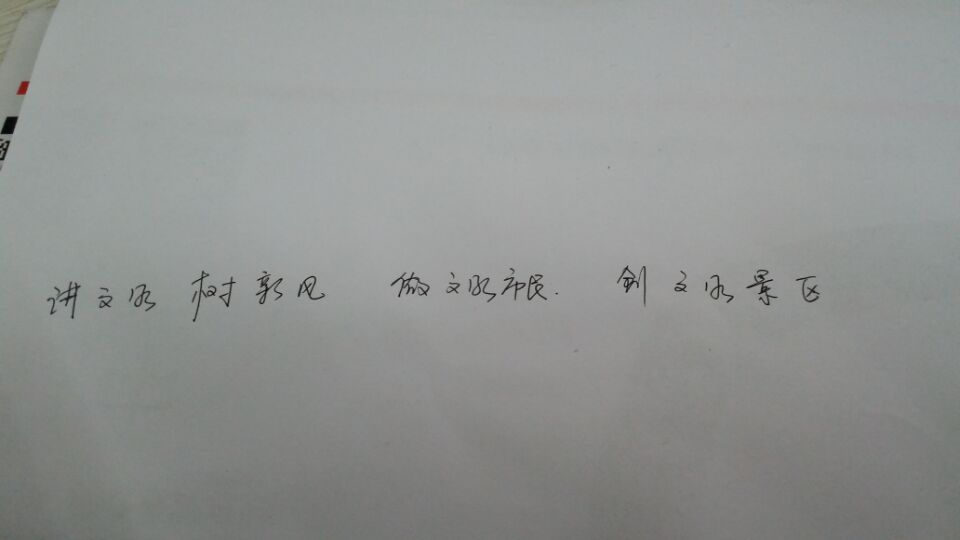 讲文明 树新风 做文明市民. 创文明景区